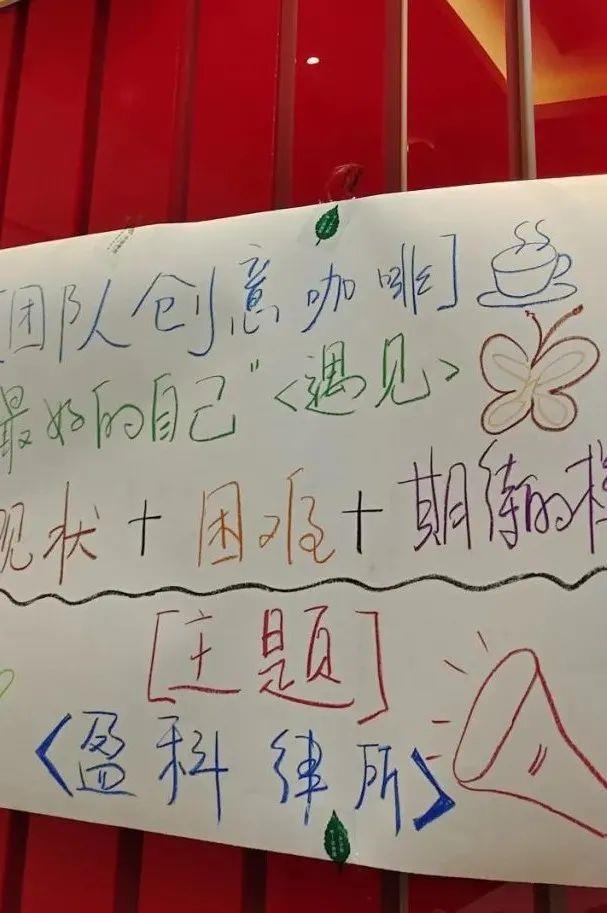 [团队创意咖啡]
最好的自己" <遇见>
现状 + 困难 + 期待的
[主题]
<盈科律所>